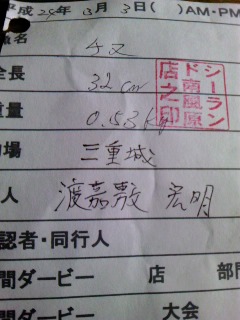 平成24年3月3日( )AM・PM
職名 チヌ
全長 32cm
重量 0.53kg
シーラン
ド南風原
店之印
場 三重城
人 渡嘉敷 宏明
認者・同行人
間ダービー 店 部門
間ダービー 大会